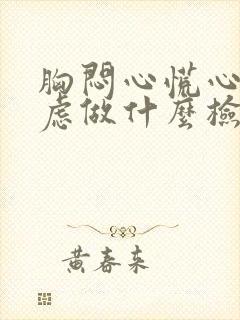 胸悶心慌心
慮做什麼檢
黃春来